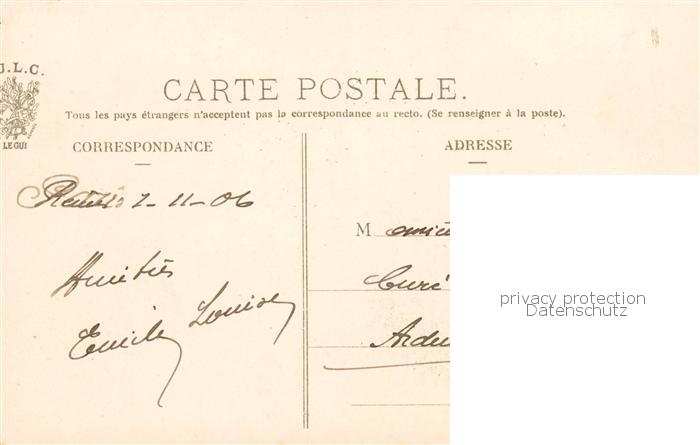 J.L.C.
LE GUI
CARTE POSTALE.
Tous les pays étrangers n'acceptent pas la correspondance au recto. (Se renseigner à la poste).
CORRESPONDANCE
ADRESSE
11-06
M
Amitiés
Curé
Louise
Emile
privacy protection
Datenschutz